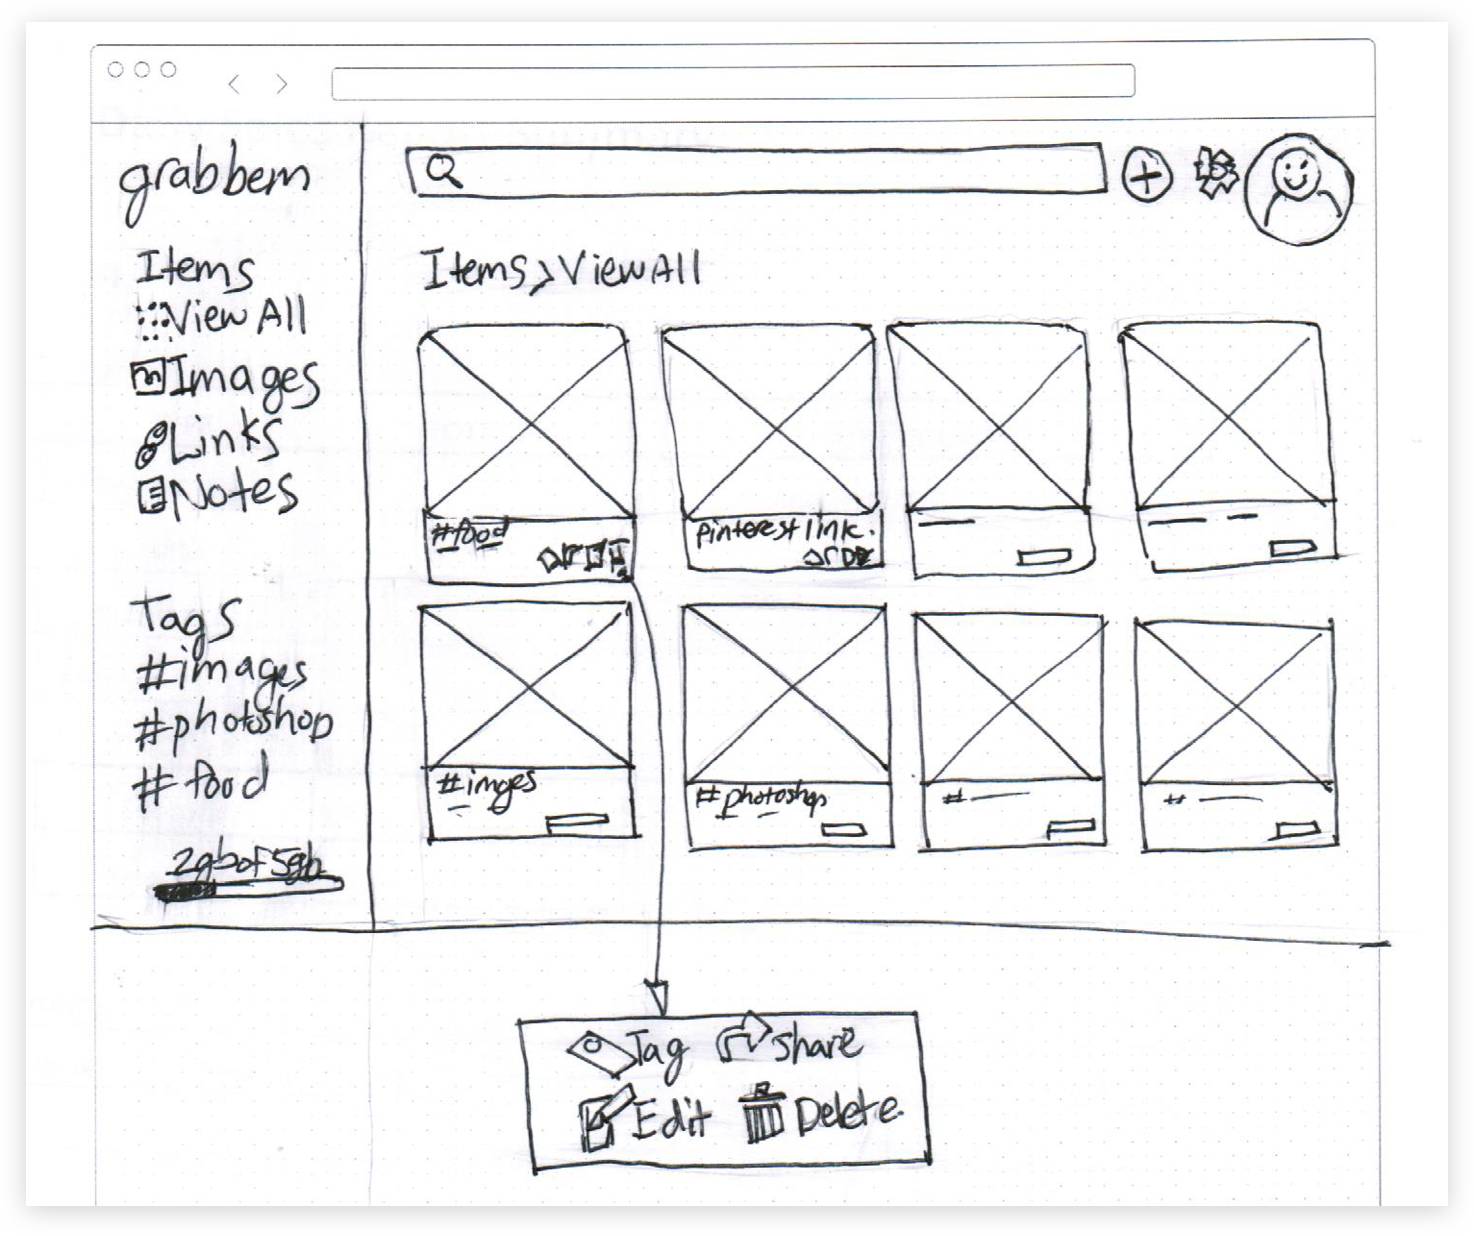 grabbem
Items
View All
Images
Links
Notes
Tags
#images
#photoshop
#food
2gb of 5gb
Items > View All
#food
pinterest link.
#imges
#photoshop
#
#
Tag
Share
Edit
Delete